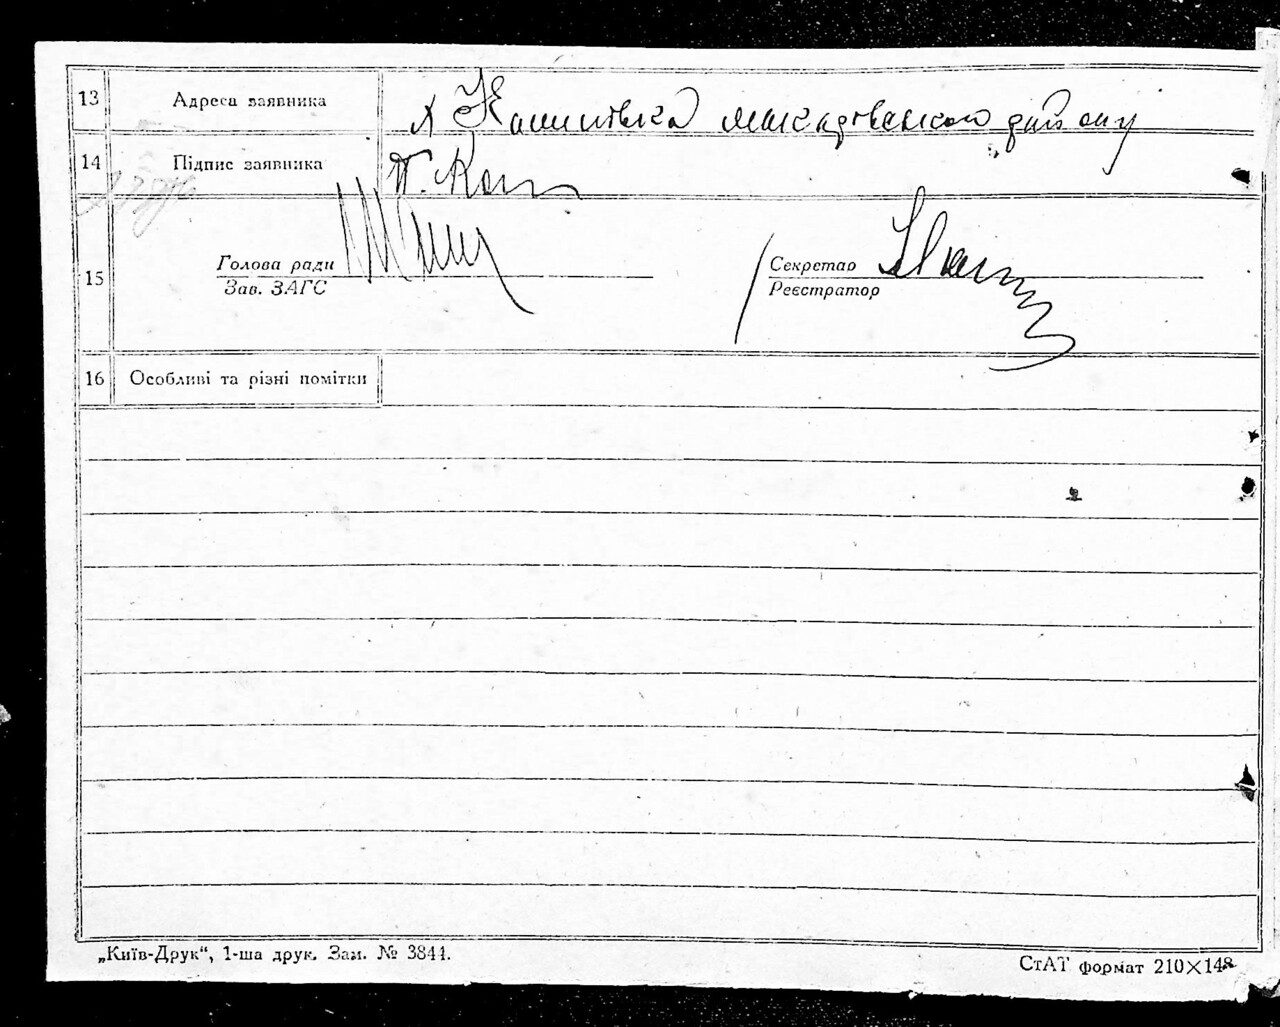 13 Адреса заявника х Комитівка макарівського району
14 Підпис заявника
15 Голова ради Секретар
Зав. ЗАГС Реєстратор
16 Особливі та різні помітки
„Київ-Друк“, 1-ша друк. Зам. № 3844.
СтАТ формат 210×148